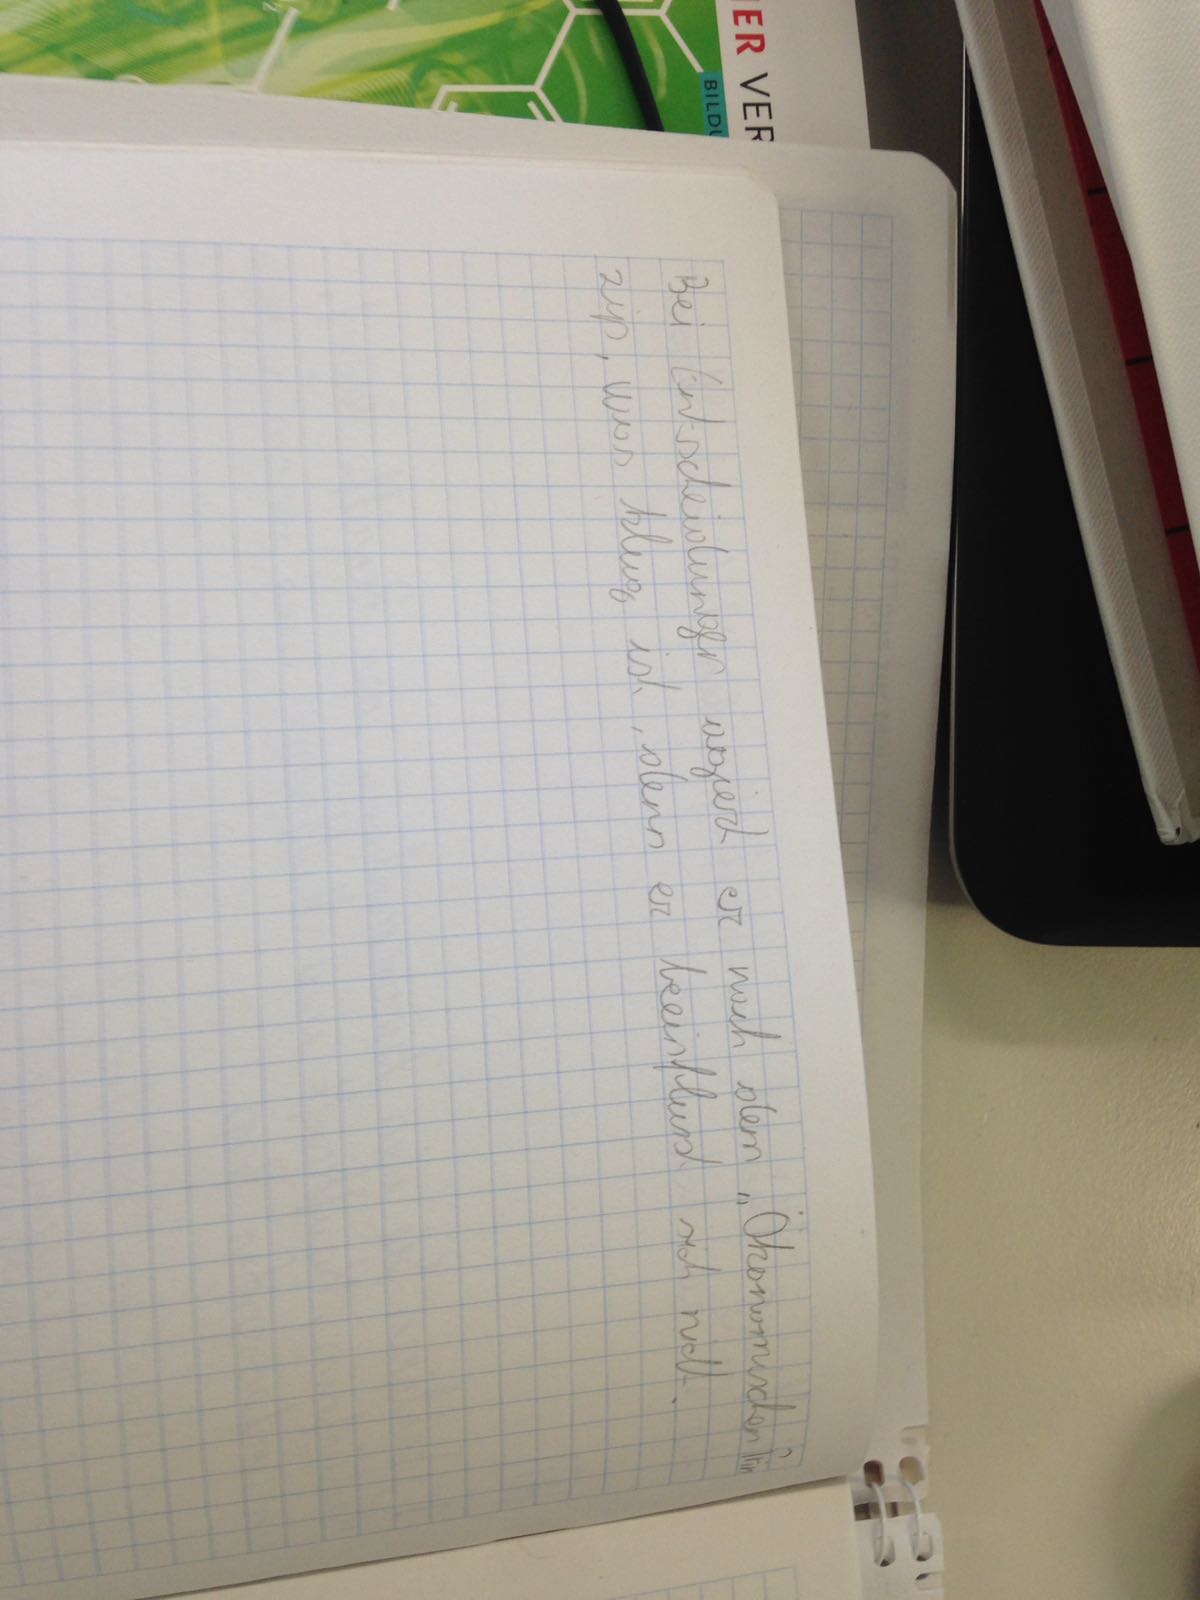 IER VER
BILDU
Bei Entscheidungen agiert er nach dem „Ökonomischen Prin
zip, was klug ist, denn er beeinflusst sich nicht.
2